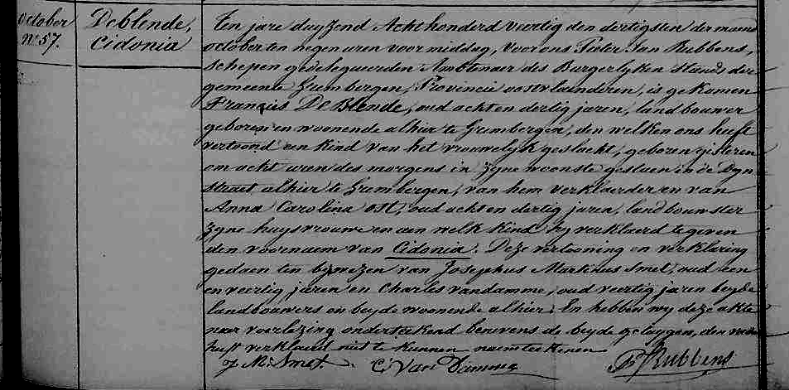 October
N° 57.
Deblende,
Cidonia
Ten jare duyzend Achthonderd veertig den dertigsten der maand
october ten negen uren voor middag, Voor ons Pieter Jan Rubbens,
schepen gedelegueerden Ambtenaer des Burgerlyken stands der
gemeente Grembergen, Provincie oostvlaenderen, is gekomen
Francies De Blende, oud acht en dertig jaren, landbouwer
geboren en woonende alhier te Grembergen, den welken ons heeft
vertoond een kind van het vrouwelyk geslacht, geboren gisteren
om acht uren des morgens in zyne woonste gestaen in de
straet alhier te Grembergen, van hem verklaerder en van
Anna Carolina ost, oud acht en dertig jaren, landbouwster
zyne huysvrouwe en aen welk kind hy verklaerd te geven
den voornaem van Cidonia. Deze vertooning en verklaring
gedaen ten bywezen van Josephus Markus Smet, oud een
en veertig jaren en Charles vandamme, oud veertig jaren beyde
landbouwers en beyde woonende alhier. En hebben wy deze akte
naer voorlezing onderteekend benevens de beyde getuygen, den
heeft verklaerd niet te kunnen naemteekenen
J M: Smet. C: Van Damme P J Rubbens